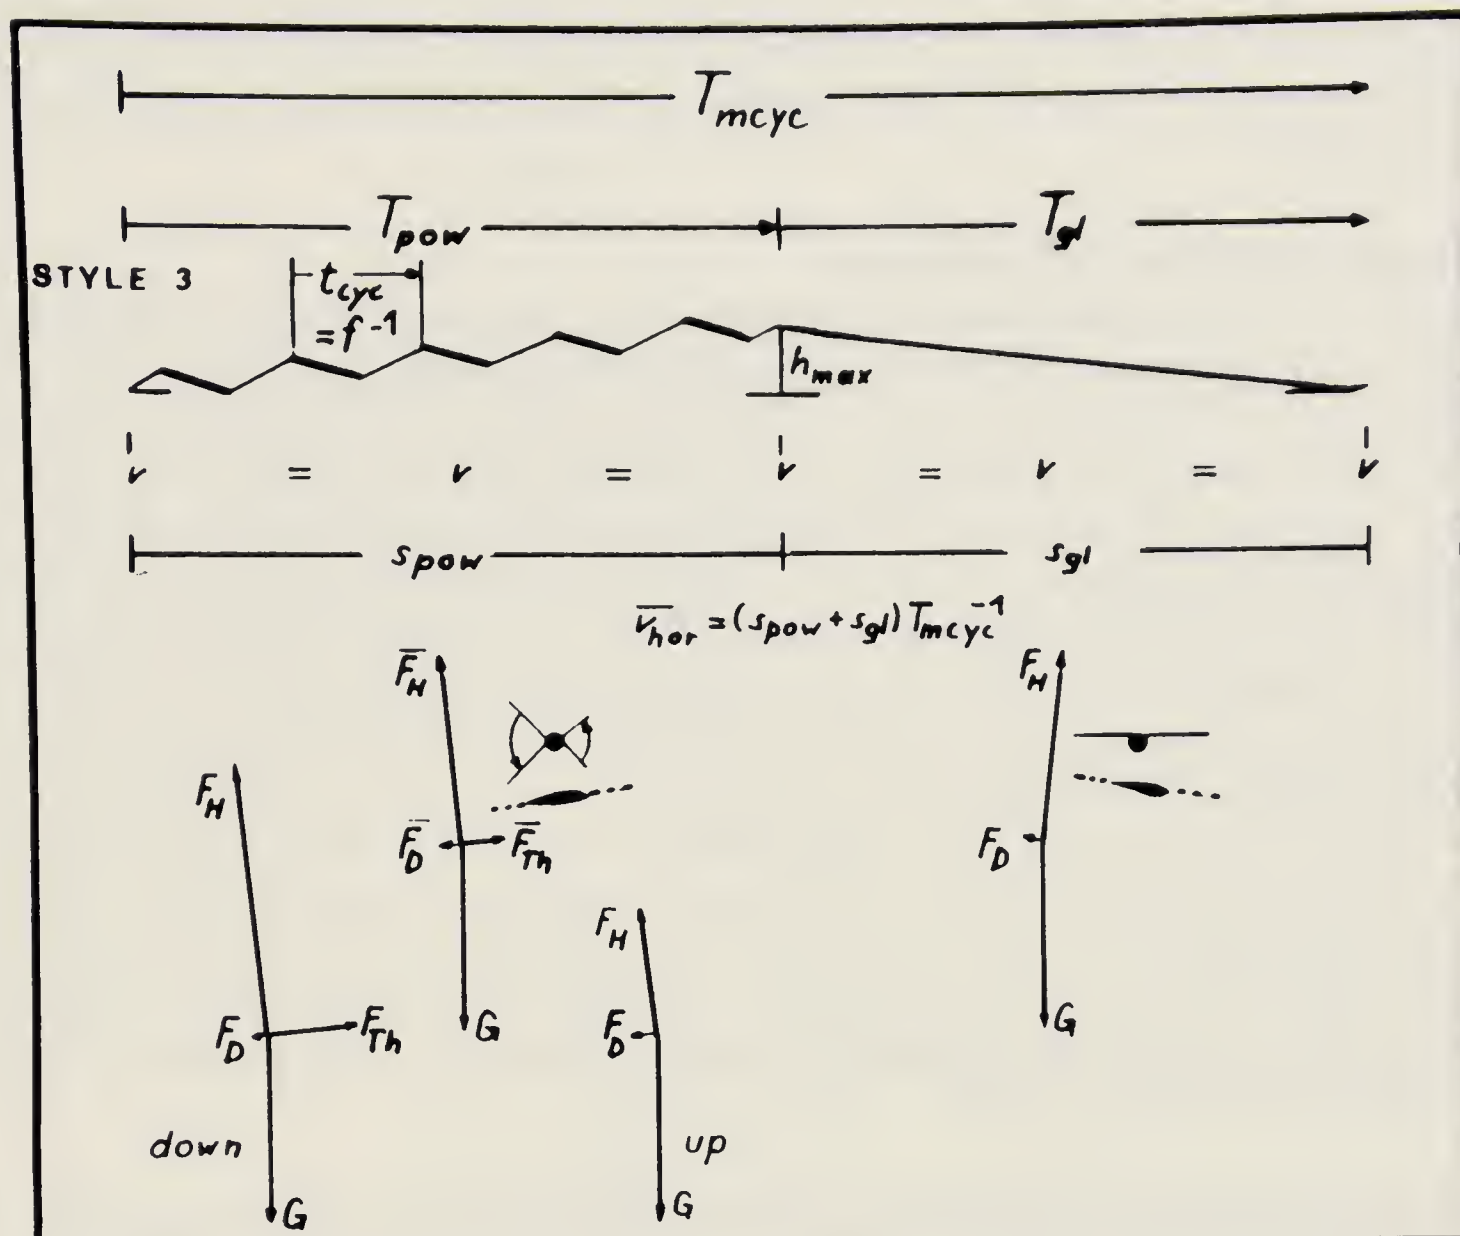 T_mcyc
T_pow T_gl
STYLE 3
t_cyc
= f⁻¹
h_max
v = v = v = v = v
s_pow s_gl
v̅_hor = (s_pow + s_gl) T_mcyc⁻¹
F̅_H F_H
F_H
F̅_D F̅_Th F_D
F_H
G G
F_D F_Th F_D
down up
G G